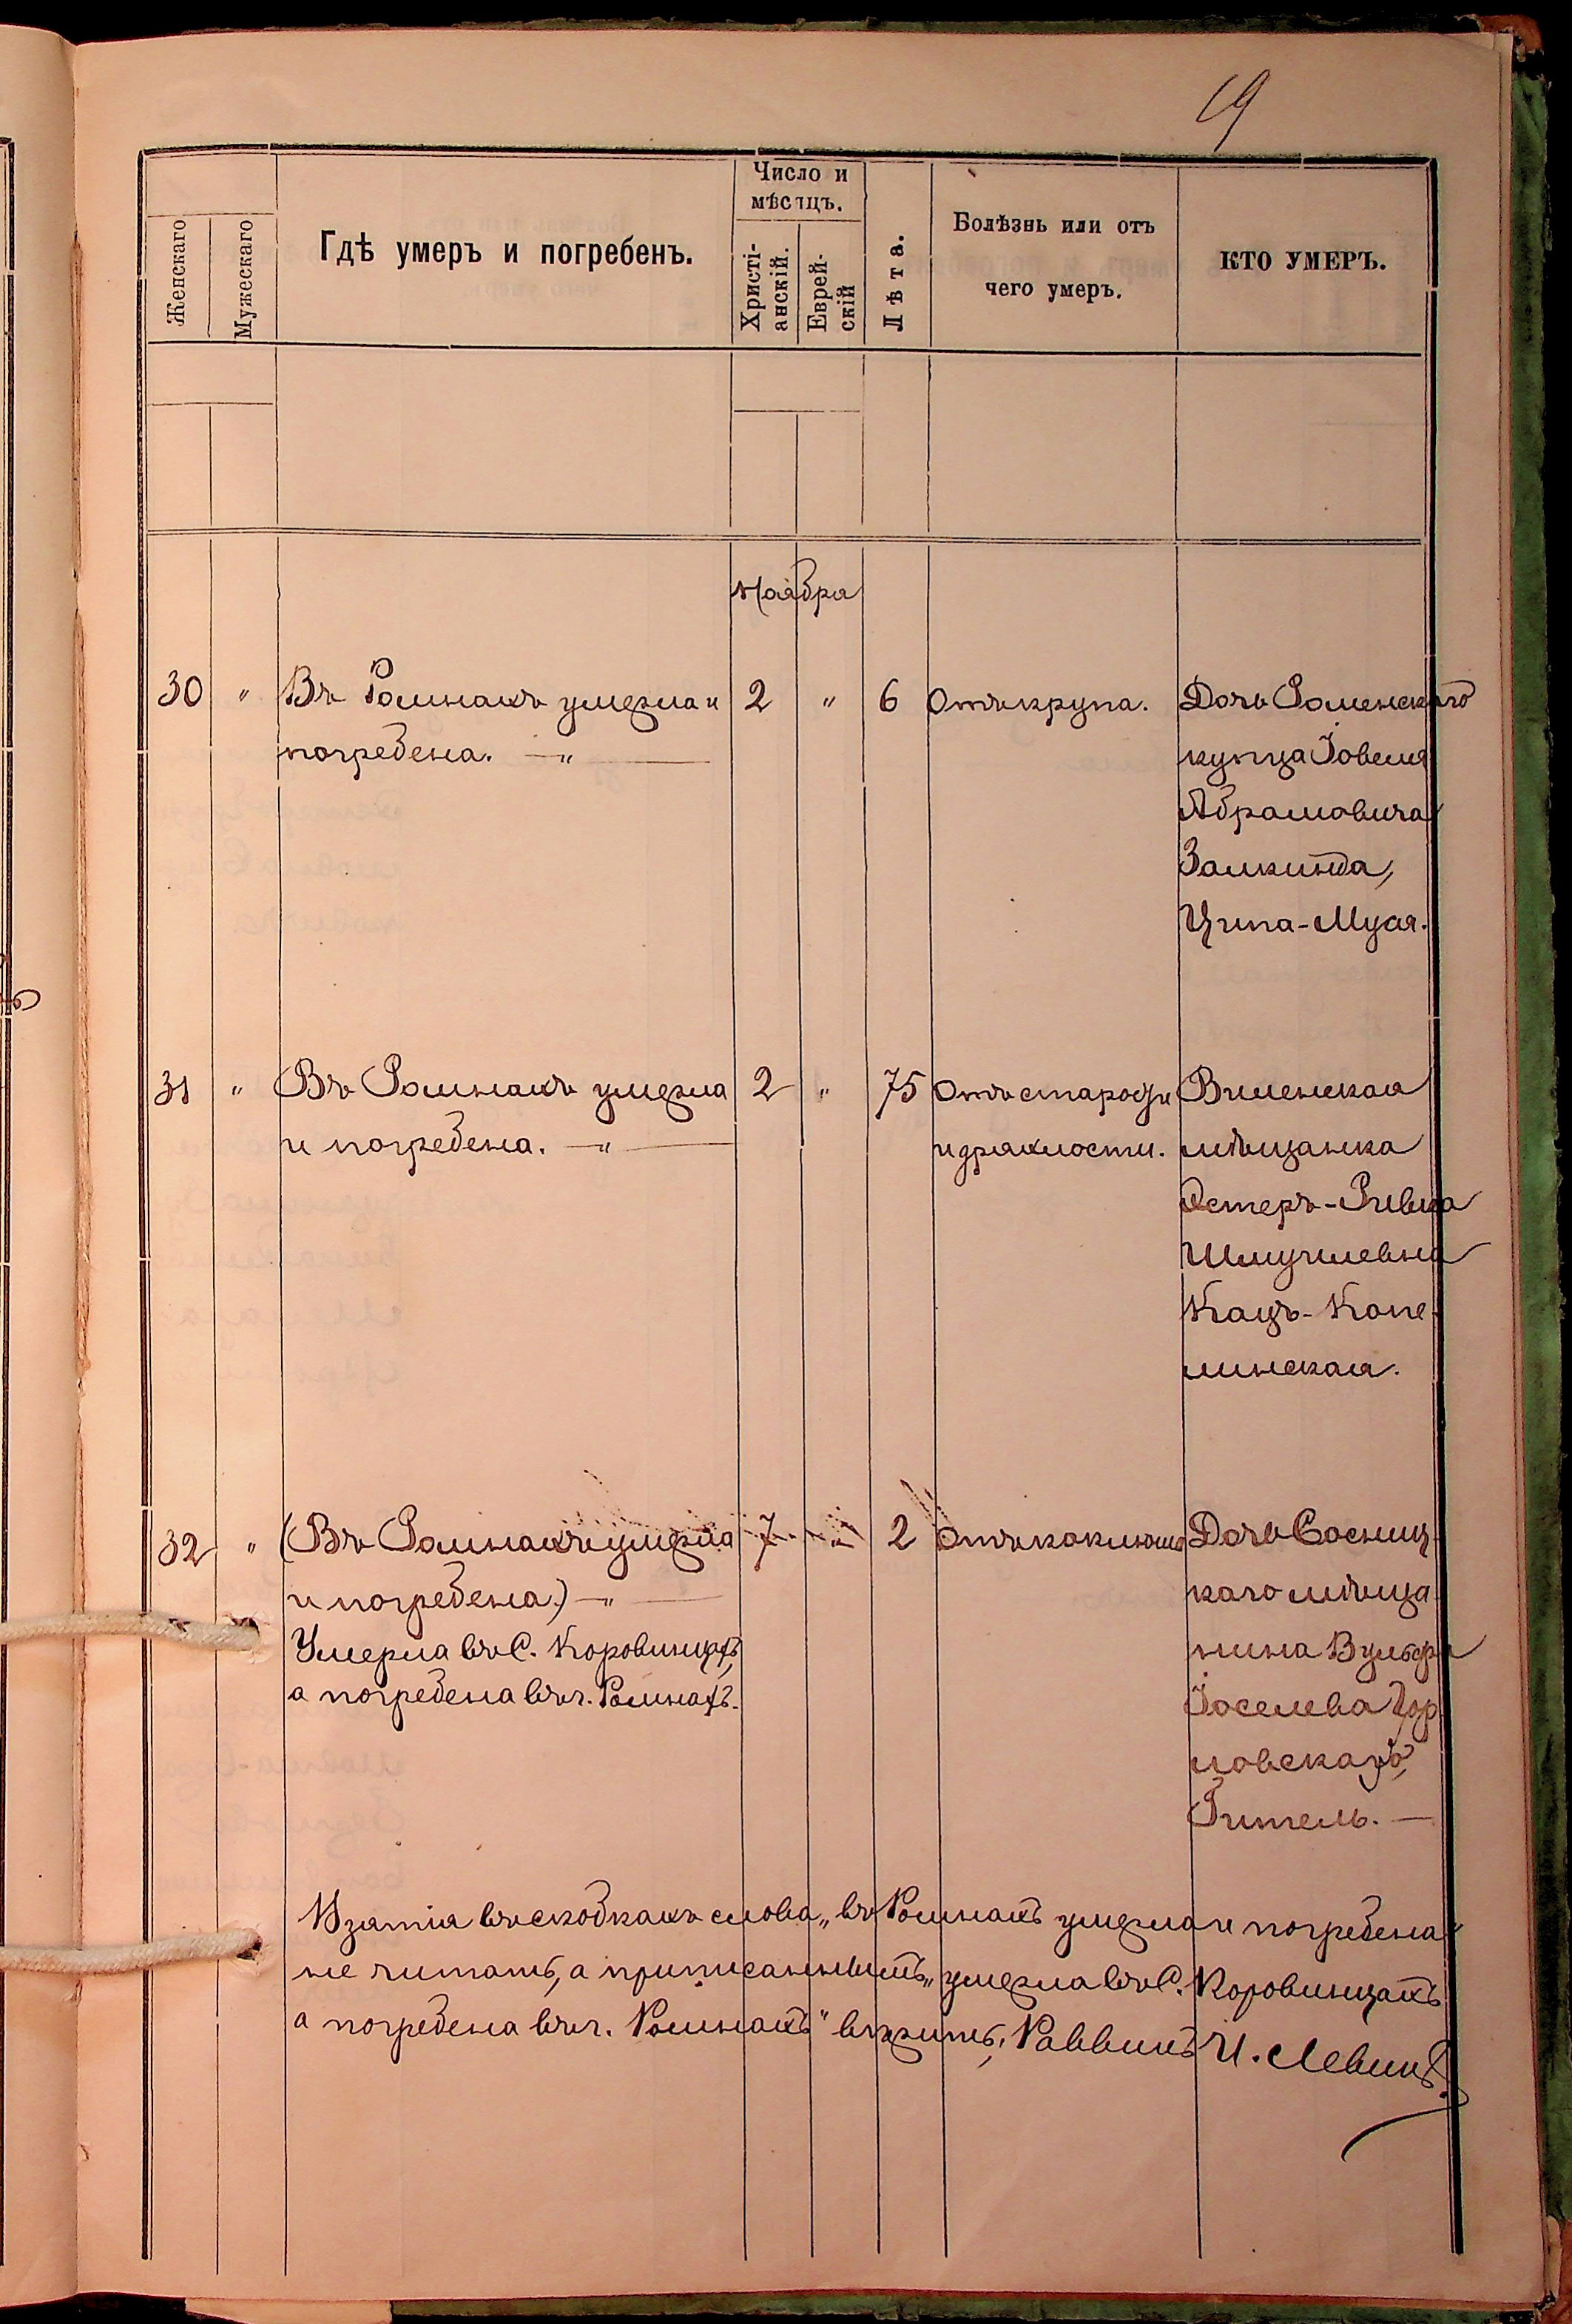 19
Женскаго
Мужескаго
Гдѣ умеръ и погребенъ.
Число и
мѣсяцъ.
Христі-
анскій.
Еврей-
скій
Лѣта.
Болѣзнь или отъ
чего умеръ.
КТО УМЕРЪ.
Ноября
30 " Въ Ромнахъ умерла и 2 " 6 Отъ крупа. Дочь Роменскаго
погребена. —"— купца Іовеля
Абрамовича
Залкинда,
Ципа-Муся.
31 " Въ Ромнахъ умерла 2 " 75 Отъ старости Виленская
и погребена. —"— и дряхлости. мѣщанка
Эстеръ-Ривка
Шмуилевна
Кацъ-Капе-
линская.
32 " (Въ Ромнахъ умерла 7 " 2 Отъ коклюша Дочь Сосниц-
и погребена.) —"— каго мѣща-
Умерла въ С. Коровинцахъ, нина Вульфа
а погребена въ г. Ромнахъ. Іоселева
новскаго,
Гитель. —
Взятія въ скобкахъ слова „въ Ромнахъ умерла и погребена"
не читать, а приписаннымъ „умерла въ С. Коровинцахъ
а погребена въ г. Ромнахъ" вѣрить, Раввинъ И. Левинъ.